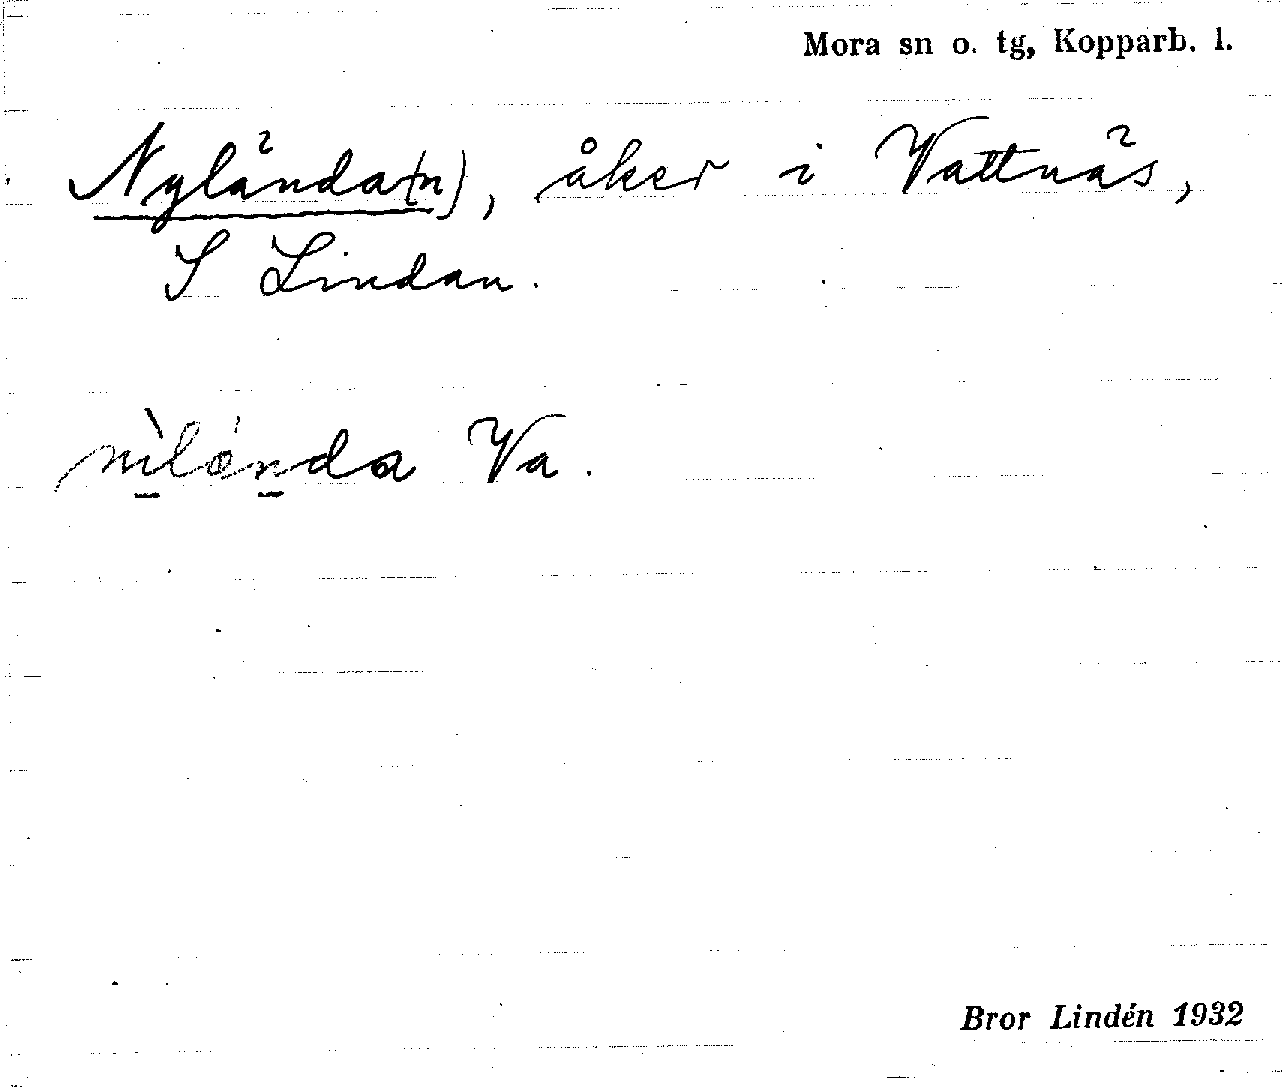 Mora sn o. tg, Kopparb. l.
Nylända(n), åker i Vattnäs,
S Lindan.
nìlǻnda Va.
Bror Lindén 1932